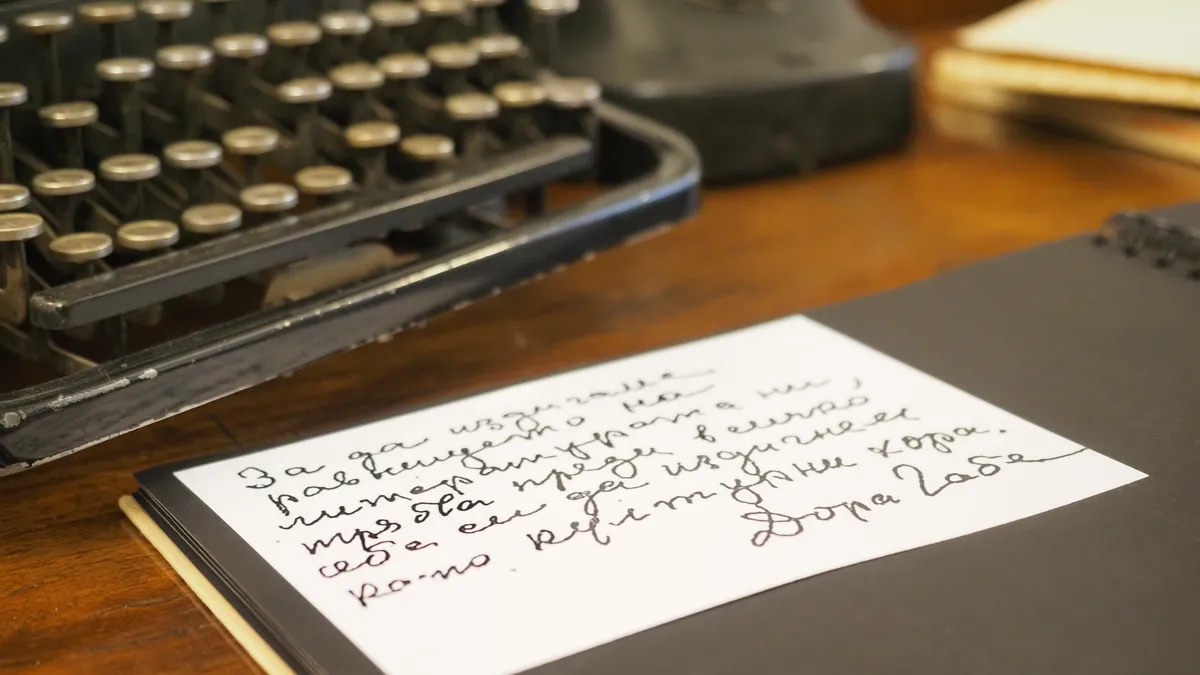 За да издигаме
равнището на
литературата ни,
трябва преди всичко
себе си да издигнем
като културни хора.
Дора Габе